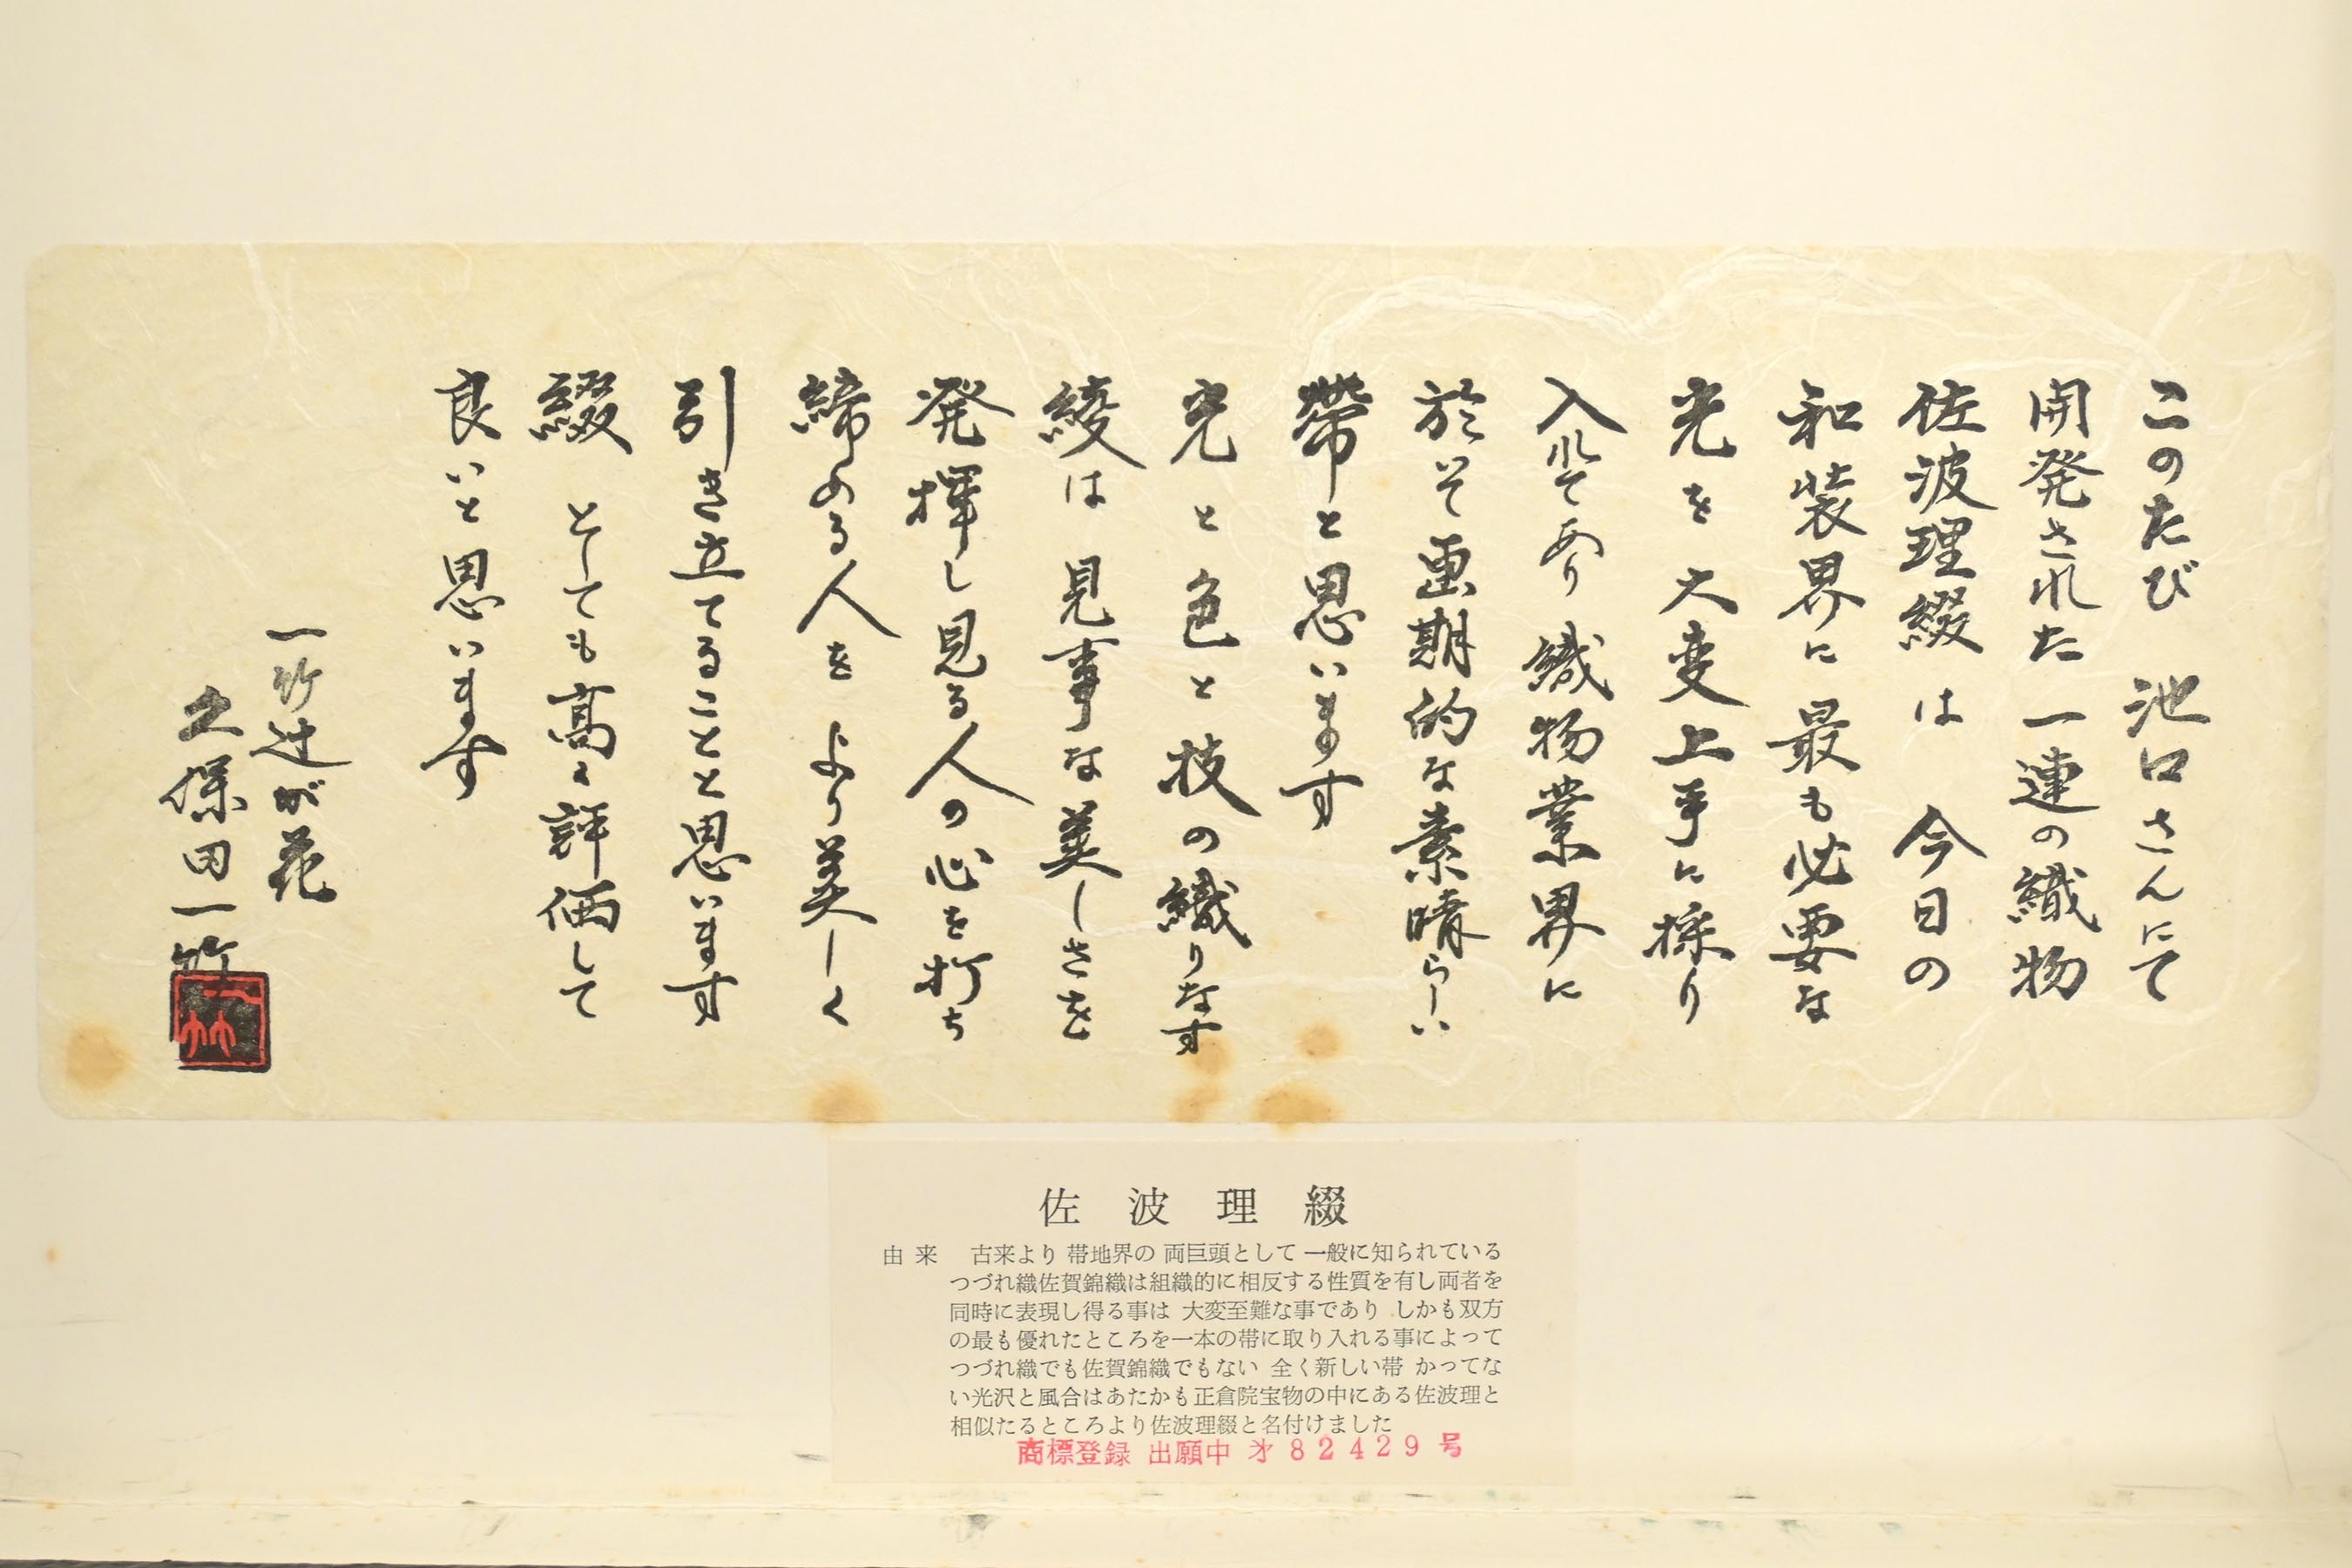 このたび 池口さんにて
開発された一連の織物
佐波理綴は 今日の
和装界に最も必要な
光を大変上手に採り
入れてあり織物業界に
於いて画期的な素晴らしい
帯と思います
光と色と技の織りなす
綾は見事な美しさを
発揮し見る人の心を打ち
締める人をより美しく
引き立てることと思います
綴 としても高く評価して
良いと思います
一竹辻が花
久保田一竹
一竹
佐波理綴
由来 古来より 帯地界の 両巨頭として 一般に知られている
つづれ織佐賀錦織は組織的に相反する性質を有し両者を
同時に表現し得る事は 大変至難な事であり しかも双方
の最も優れたところを一本の帯に取り入れる事によって
つづれ織でも佐賀錦織でもない 全く新しい帯 かってな
い光沢と風合はあたかも正倉院宝物の中にある佐波理と
相似たるところより佐波理綴と名付けました
商標登録 出願中 才82429号